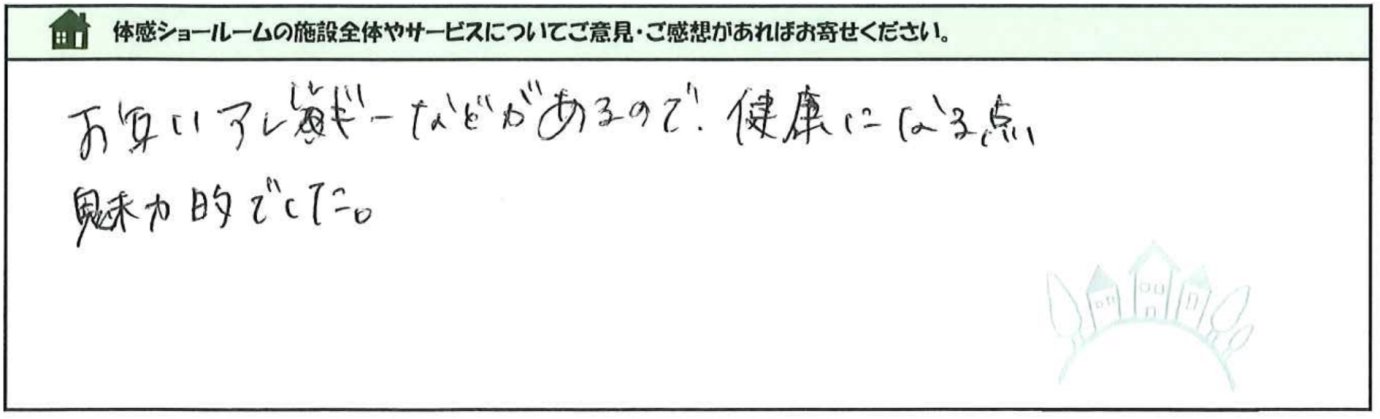 体感ショールームの施設全体やサービスについてご意見・ご感想があればお寄せください。
お互いアレルギーなどがあるので、健康になる点
魅力的でした。